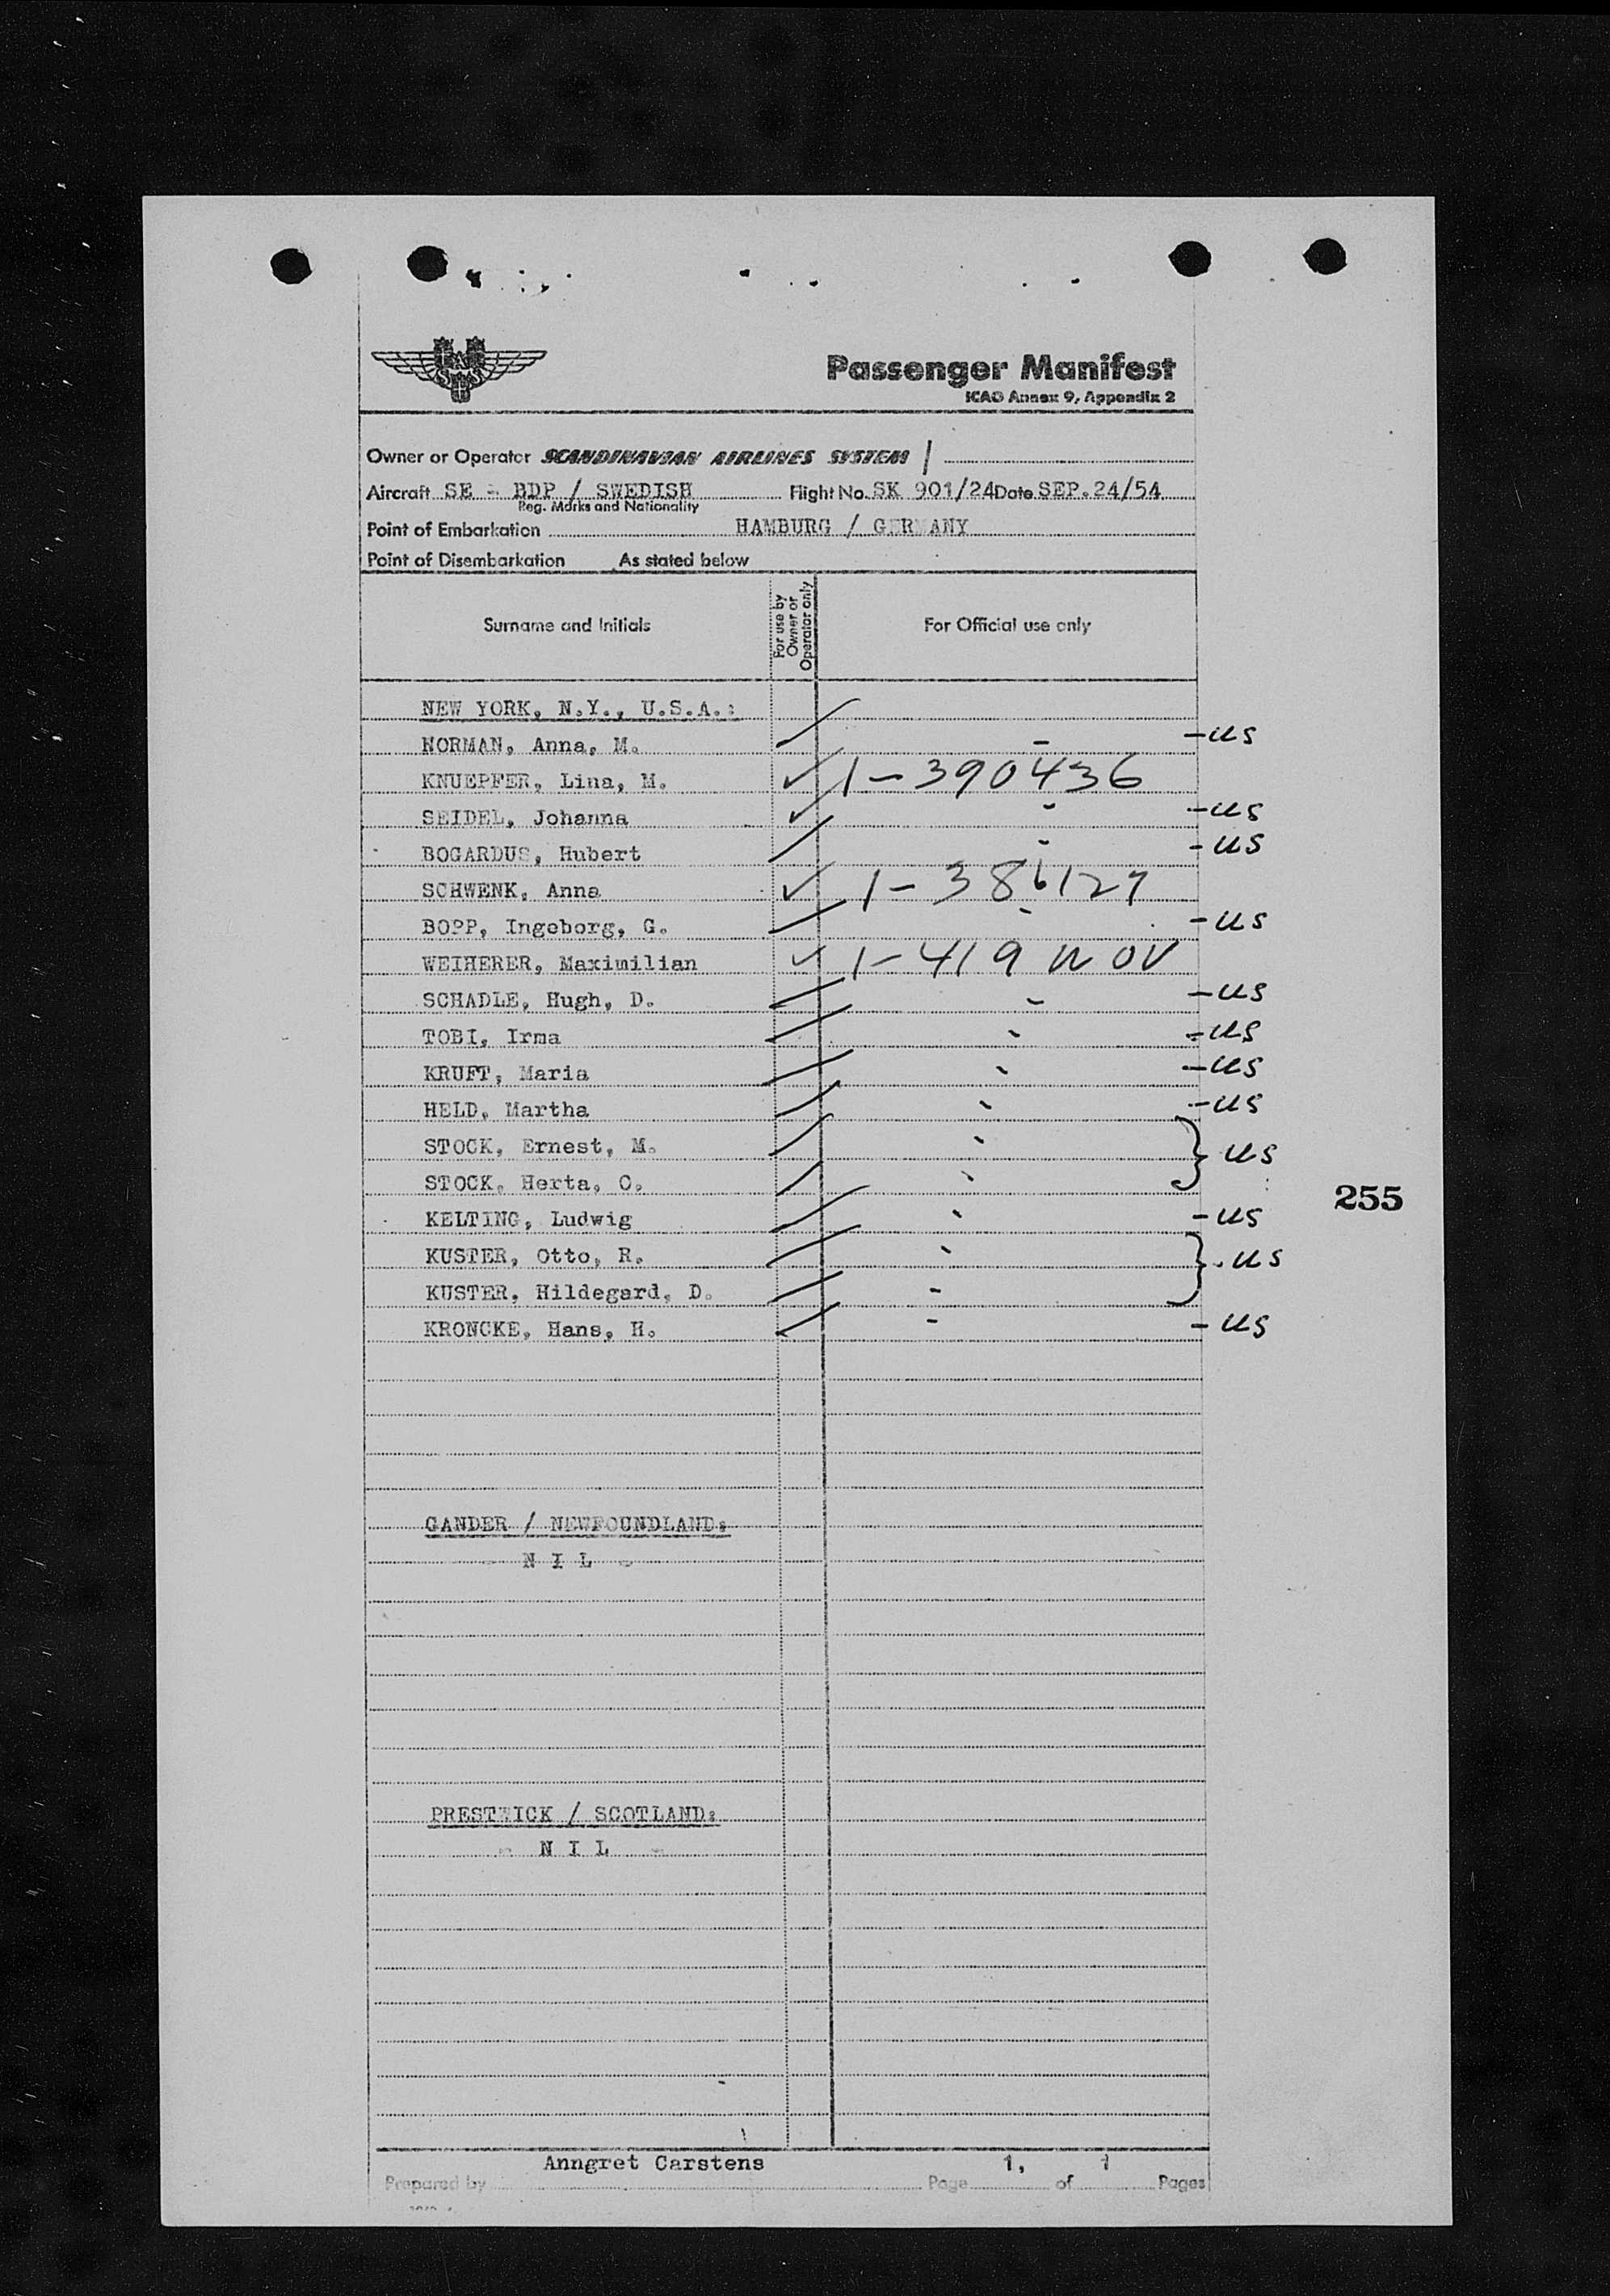 SAS
Passenger Manifest
ICAO Annex 9, Appendix 2
Owner or Operator SCANDINAVIAN AIRLINES SYSTEM /
Aircraft SE - BDP / SWEDISH Flight No. SK 901/24 Date SEP.24/54
Reg. Marks and Nationality
Point of Embarkation HAMBURG / GERMANY
Point of Disembarkation As stated below
Surname and Initials For use by Owner or Operator only For Official use only
NEW YORK, N.Y., U.S.A.:
NORMAN, Anna, M. - - US
KNUEPFER, Lina, M. ✓ 1-390436
SEIDEL, Johanna ✓ - - US
BOGARDUS, Hubert - - US
SCHWENK, Anna ✓ 1-386127
BOPP, Ingeborg, G. - - US
WEIHERER, Maximilian ✓ 1-419 NOV
SCHADLE, Hugh, D. - - US
TOBI, Irma - US
KRUFT, Maria - US
HELD, Martha - US
STOCK, Ernest, M.
STOCK, Herta, O. } US
KELTING, Ludwig - US
KUSTER, Otto, R.
KUSTER, Hildegard, D. - } US
KRONCKE, Hans, H. - - US
255
GANDER / NEWFOUNDLAND:
- N I L -
PRESTWICK / SCOTLAND:
- N I L -
Anngret Carstens 1, 1
Prepared by Page of Pages